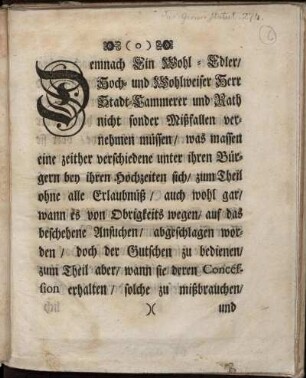 ( o )
Demnach Ein Wohl-Edler/
Hoch- und Wohlweiser Herr
Stadt-Cammerer und Rath
nicht sonder Mißfallen ver-
nehmen müssen/ was massen
eine zeither verschiedene unter ihren Bür-
gern bey ihren Hochzeiten sich/ zum Theil
ohne alle Erlaubnüß/ auch wohl gar/
wann es von Obrigkeits wegen/ auf das
beschehene Ansuchen/ abgeschlagen wor-
den/ doch der Gutschen zu bedienen/
zum Theil aber/ wann sie deren Concéf-
sion erhalten/ solche zu mißbrauchen/
)( und